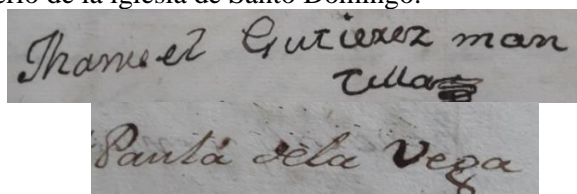 erio de la Iglesia de Santo Domingo.
Manuel Gutierez man
tilla
Paula dela Vega